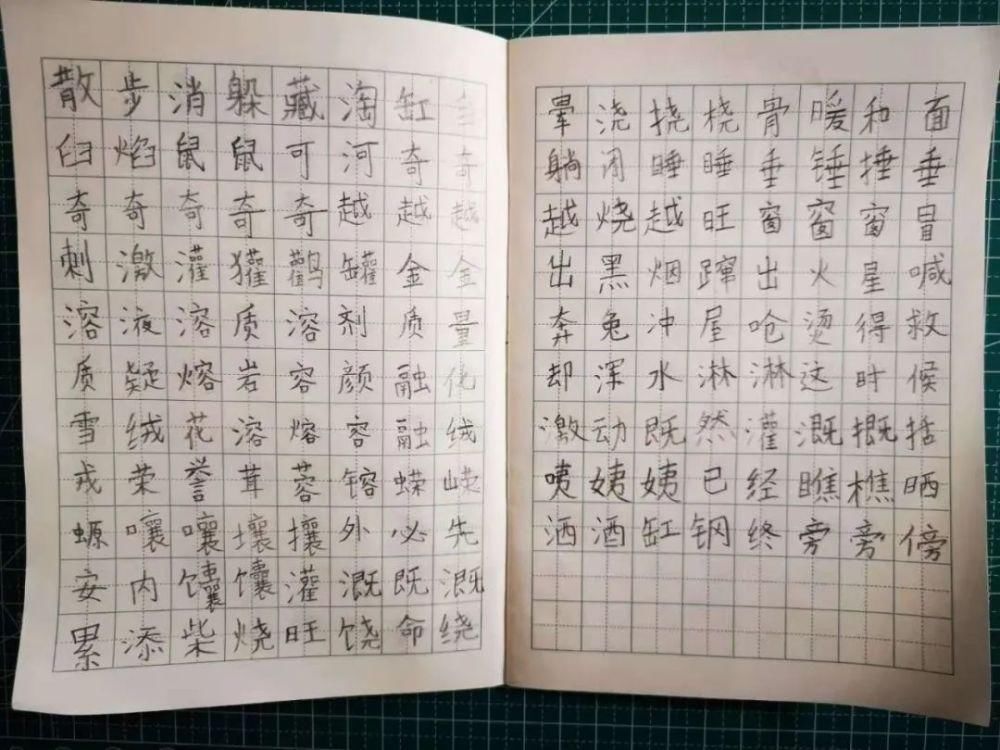 散步消躲藏淘缸
臼焰鼠鼠可河奇奇
奇奇奇奇奇越越越
刺激灌獾鹳罐金金
溶液溶质溶剂质量
质凝熔岩容颜融化
雪绒花溶熔容融绒
戎荣誉茸蓉镕蝾嵘
螈嚷嚷壤攘外必先
安内馕馕灌溉既溉
累添柴烧旺饶命绕
晕浇挠桡骨暖和面
躺闭睡睡垂锤捶垂
越烧越旺窗窗窗冒
出黑烟蹿出火星喊
奔兔冲屋呛烫得救
却浑水淋淋这时候
激动既然灌溉概括
咦姨姨已经瞧樵晒
洒酒缸钢终旁旁傍